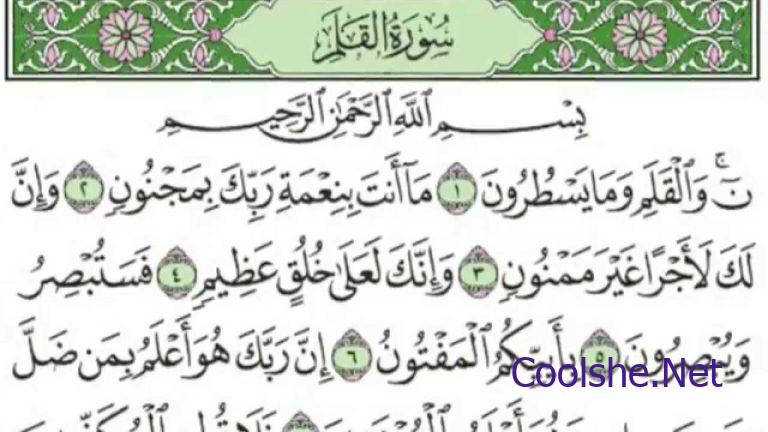 سُورَةُ القَلَمِ
بِسْمِ ٱللَّهِ ٱلرَّحْمَٰنِ ٱلرَّحِيمِ
نٓ ۚ وَٱلْقَلَمِ وَمَا يَسْطُرُونَ ١ مَآ أَنتَ بِنِعْمَةِ رَبِّكَ بِمَجْنُونٍ ٢ وَإِنَّ
لَكَ لَأَجْرًا غَيْرَ مَمْنُونٍ ٣ وَإِنَّكَ لَعَلَىٰ خُلُقٍ عَظِيمٍ ٤ فَسَتُبْصِرُ
وَيُبْصِرُونَ ٥ بِأَييِّكُمُ ٱلْمَفْتُونُ ٦ إِنَّ رَبَّكَ هُوَ أَعْلَمُ بِمَن ضَلَّ
Coolshe.Net